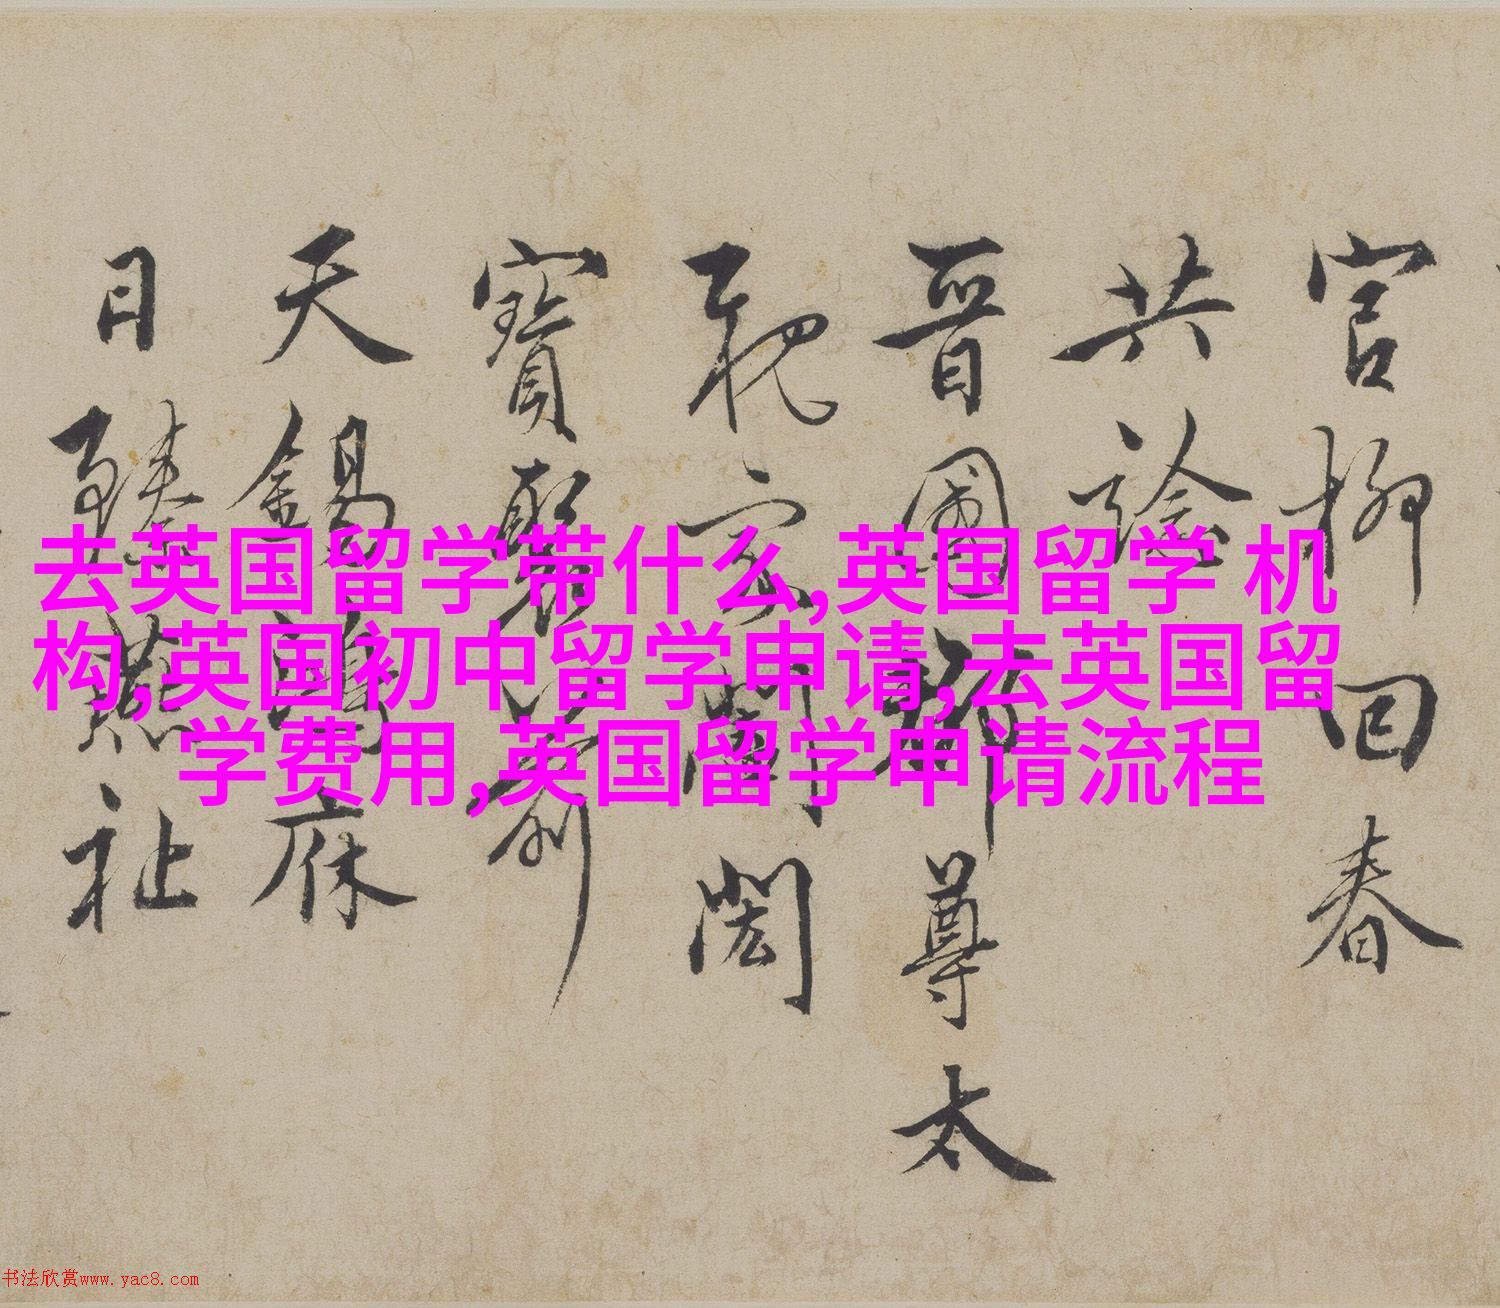 官柳回春
共諗
晋國
尊太
靶宗
闳
寶
天錫
庥
日臻
祉
去英国留学带什么,英国留学 机
构,英国初中留学申请,去英国留
学费用,英国留学申请流程
书法欣赏www.yac8.com